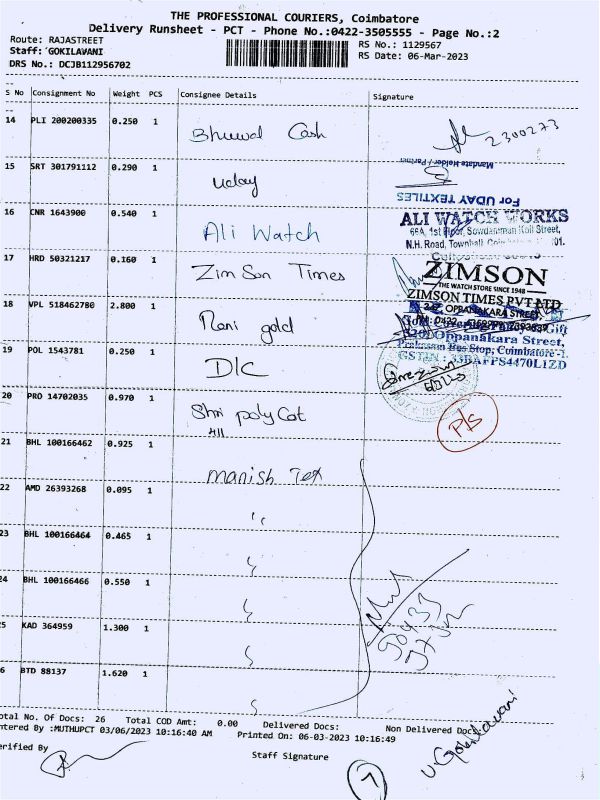 THE PROFESSIONAL COURIERS, Coimbatore
Delivery Runsheet - PCT - Phone No.:0422-3505555 - Page No.:2
Route: RAJASTREET
Staff: GOKILAVANI
DRS No.: DCJB112956702
RS No.: 1129567
RS Date: 06-Mar-2023
S No Consignment No Weight PCS Consignee Details Signature
14 PLI 200200335 0.250 1 Cash
2300273
15 SRT 301791112 0.290 1 Uday
Mandate Holder / Partner
For UDAY TEXTILES
16 CNR 1643900 0.540 1 Ali Watch
ALI WATCH WORKS
66A, 1st Floor, Sowdamman Koil Street,
N.H. Road, Townhall, 01.
17 HRD 50321217 0.160 1 Zim Son Times
ZIMSON
THE WATCH STORE SINCE 1948
ZIMSON TIMES PVT LTD
OPPANAKARA STREET
18 VPL 518462780 2.800 1 Mani gold
Gift
Oppanakara Street,
Prakasam Bus Stop, Coimbatore-1.
GSTIN : 33BAFFS4470L1ZD
19 POL 1543781 0.250 1 DLC
20 PRO 14702035 0.970 1 Shri poly Cot
P/S
21 BHL 100166462 0.925 1 Manish Tex
22 AMD 26393268 0.095 1 "
23 BHL 100166464 0.465 1
24 BHL 100166466 0.550 1
5 KAD 364959 1.300 1
6 BTD 88137 1.620 1
otal No. Of Docs: 26 Total COD Amt: 0.00 Delivered Docs: Non Delivered Docs:
ntered By :MUTHUPCT 03/06/2023 10:16:40 AM Printed On: 06-03-2023 10:16:49
erified By
Staff Signature
V. Gokilavani
7